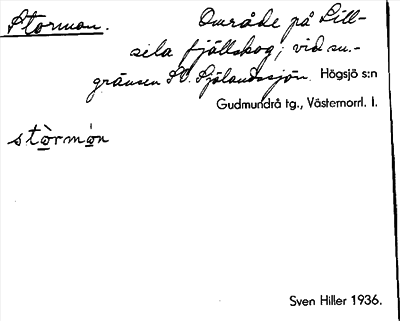 Stormon. Område på Lill-
sela fjällskog; vid su.-
gränsen SV. Själandssjön. Högsjö s:n
Gudmundrå tg., Västernorrl. l.
stòrmón
Sven Hiller 1936.